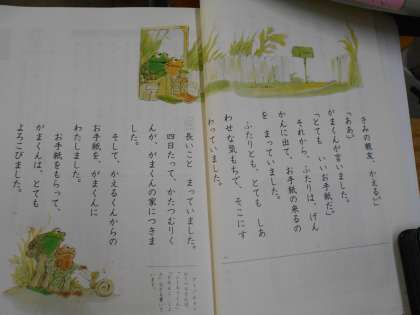 きみの親友、かえる。」
「ああ。」
がまくんが言いました。
「とても いいお手紙だ。」
それから、ふたりは、げん
かんに出て、お手紙の来るの
を まっていました。
ふたりとも、とても しあ
わせな気もちで、そこにす
わっていました。
長いこと まっていました。
四日たって、かたつむりく
んが、がまくんの家につきま
した。
そして、かえるくんからの
お手紙を、がまくんに
わたしました。
お手紙をもらって、
がまくんは、とても
よろこびました。